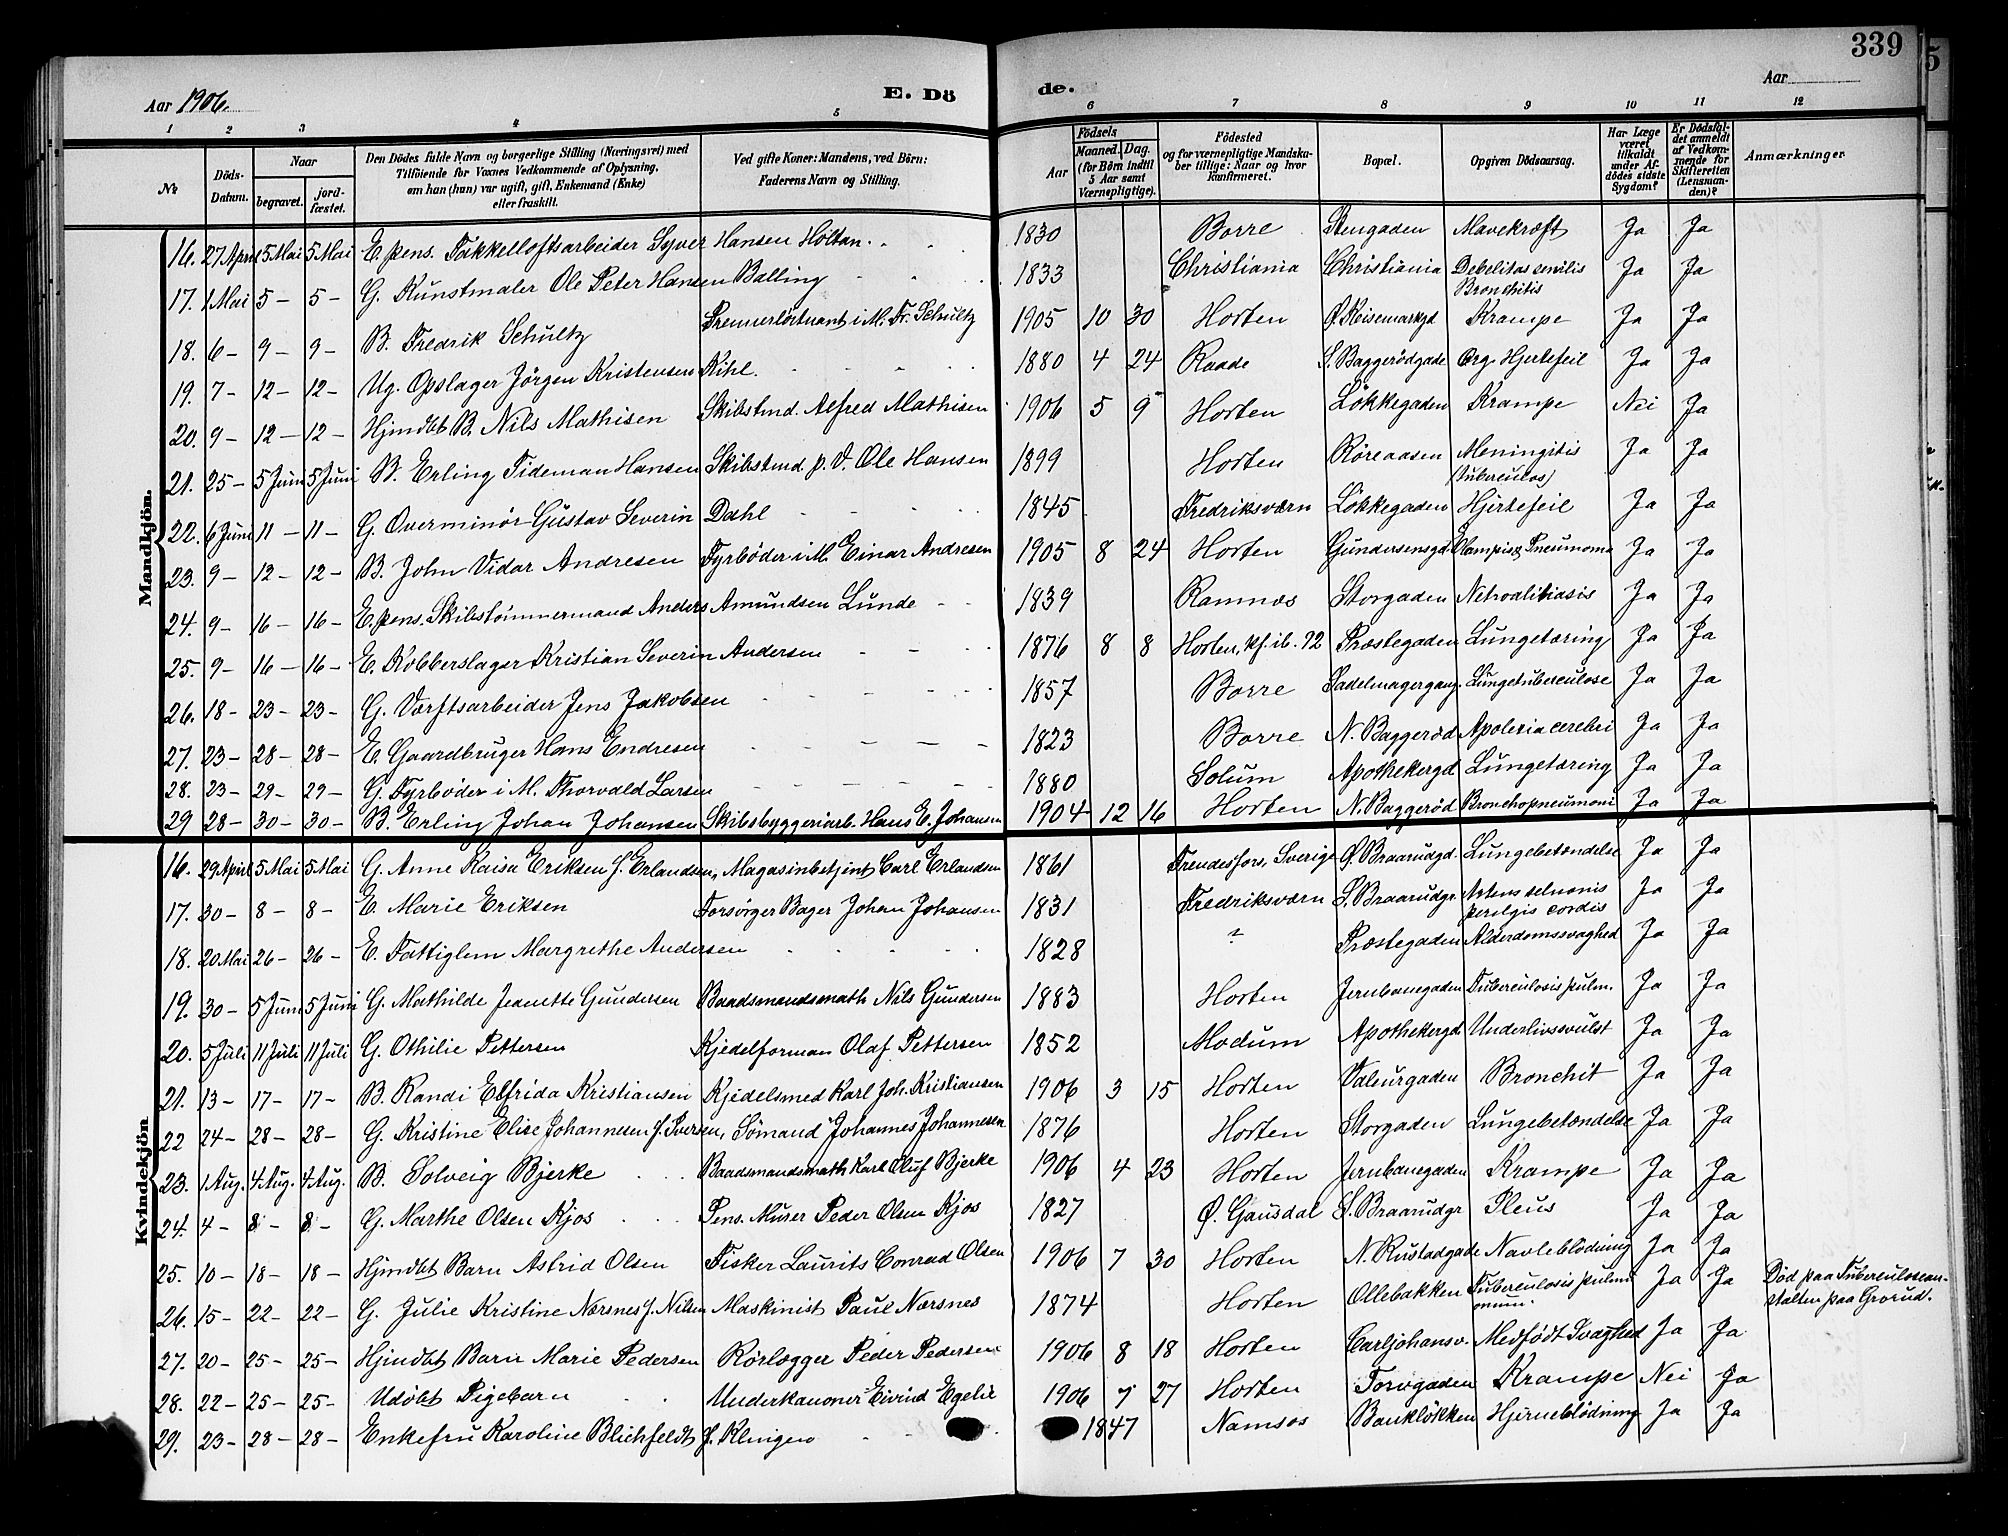 339
Aar 1906. E. Dö de. Aar
1 2 3 4 5 6 7 8 9 10 11 12
№ Döds-Datum. Naar begravet. jordfæstet. Den Dödes fulde Navn og borgerlige Stilling (Næringsvei) med Tilföiende for Voxnes Vedkommende af Oplysning, om han (hun) var ugift, gift, Enkemand (Enke) eller fraskilt. Ved gifte Koner: Mandens, ved Börn: Faderens Navn og Stilling. Födsels Aar Maaned. Dag. (for Börn indtil 5 Aar samt Værnepligtige). Födested og for værnepligtige Mandskaber tillige: Naar og hvor konfirmeret. Bopæl. Opgiven Dödsaarsag. Har Læge været tilkaldt under Afdödes sidste Sygdom? Er Dödsfaldet anmeldt af Vedkommende for Skifteretten (Lensmanden)? Anmærkninger
Mandkjön.
16. 27 April 5 Mai 5 Mai E. pens. Takkelloftsarbeider Syver Hansen Holtan. 1830 Borre Stengaden Mavekræft Ja Ja
17. 1 Mai 5 — 5 — G. Kunstmaler Ole Peter Hansen Balling 1833 Christiania Christiania Debelitas senilis Bronchitis Ja Ja
18. 6 — 9 — 9 — B. Fredrik Schultz Premierløitnant i M. Fr. Schultz 1905 10 30 Horten Ø. Keisemarkgd Krampe Ja Ja
19. 7 — 12 — 12 — Ug. Opslager Jörgen Kristensen Kihl. 1880 4 24 Raade S. Baggerödgade Org. Hjertefeil Ja Ja
20. 9 — 12 — 12 — Hjmdbt B. Nils Mathisen Skibstmd. Alfred Mathisen 1906 5 9 Horten Lökkegaden Krampe Nei Ja
21. 25 — 5 Juni 5 Juni B. Erling Tideman Hansen Skibstmd p. V. Ole Hansen 1899 Horten Röreaasen Meningitis (tuberculos) Ja Ja
22. 6 Juni 11 — 11 — G. Overminör Gustav Severin Dahl 1845 Fredriksværn Lökkegaden Hjertefeil Ja Ja
23. 9 — 12 — 12 — B. John Vidar Andresen Fyrböder i M. Einar Andresen 1905 8 24 Horten Gundersensgd. Pneumoni Ja Ja
24. 9 — 16 — 16 — E. pens. Skibstömmermand Anders Amundsen Lunde 1839 Ramnes Storgaden Ja Ja
25. 9 — 16 — 16 — E. Kobberslager Kristian Severin Andersen 1876 8 8 Horten, kf. ib. 92 Præstegaden Lungetæring Ja Ja
26. 18 — 23 — 23 — G. Værftsarbeider Jens Jakobsen 1857 Borre Sadelmagergang. Lungetuberculose Ja Ja
27. 23 — 28 — 28 — E. Gaardbruger Hans Endresen 1823 Borre N. Baggeröd Apolexia cerebri Ja Ja
28. 23 — 29 — 29 — G. Fyrböder i M. Thorvald Larsen 1880 Solum Apothekergd Lungetæring Ja Ja
29 28 — 30 — 30 — B. Erling Johan Johansen Skibsbyggeriarb. Hans E. Johansen 1904 12 16 Horten N. Baggeröd Bronchopneumoni Ja Ja
Kvindekjön
16. 29 April 5 Mai 5 Mai G. Anne Kaisa Eriksen f. Erlandsen, Magasinbetjent Carl Erlandsen 1861 Frendesfors, Sverige Ø. Braarudgd. Lungebetændelse Ja Ja
17. 30 — 8 — 8 — E. Marie Eriksen Forsörger Bager Johan Johansen 1831 Fredriksværn S. Braarudgr. cordis Ja Ja
18. 20 Mai 26 — 26 — E. Fattiglem Margrethe Andersen 1828 ? Præstegaden Alderdomssvaghed Ja Ja
19. 30 — 5 Juni 5 Juni G. Mathilde Jeanette Gundersen Baadsmandsmath Nils Gundersen 1883 Horten Jernbanegaden Tuberculosis pulm. Ja Ja
20. 5 Juli 11 Juli 11 Juli G. Othilie Pettersen Kjedelforman Olaf Pettersen 1852 Modum Apothekergd. Underlivssvulst Ja Ja
21. 13 — 17 — 17 — B. Randi Elfrida Kristiansen Kjedelsmed Karl Joh. Kristiansen 1906 3 15 Horten Valeurgaden Bronchit Ja Ja
22 24 — 28 — 28 — G. Kristine Elise Johannesen f. Iversen, Sömand Johannes Johannesen 1876 Horten Storgaden Lungebetændelse Ja Ja
23. 1 Aug. 4 Aug. 4 Aug. B. Solveig Bjerke Baadsmandsmath Karl Oluf Bjerke 1906 4 23 Horten Jernbanegaden Krampe Ja Ja
24. 4 — 8 — 8 — G. Marthe Olsen Kjos Pens. Murer Peder Olsen Kjos 1827 Ø. Gausdal S. Braarudgr Ileus Ja Ja
25. 10 — 18 — 18 — Hjmdbt Barn Astrid Olsen Fisker Laurits Conrad Olsen 1906 7 30 Horten N. Rustadgade Navleblödning Ja Ja
26. 15 — 22 — 22 — G. Julie Kristine Næsnes f. Nilsen Maskinist Paul Næsnes 1874 Horten Ollebakken Tuberculosis pulmonum. Ja Ja Död paa Tuberculoseanstalten paa Grorud.
27. 20 — 25 — 25 — Hjmdbt Barn Marie Pedersen Rörlægger Peder Pedersen 1906 8 18 Horten Carljohansv. Medfödt Svaghed Ja Ja
28. 22 — 25 — 25 — Udöbt Pigebarn Underkanoner Eivind Egelie 1906 7 27 Horten Torvgaden Krampe Nei Ja
29. 23 — 28 — 28 — Enkefru Karoline Blichfeldt f. Klingen 1847 Namsos Banklökken Hjerneblödning Ja Ja